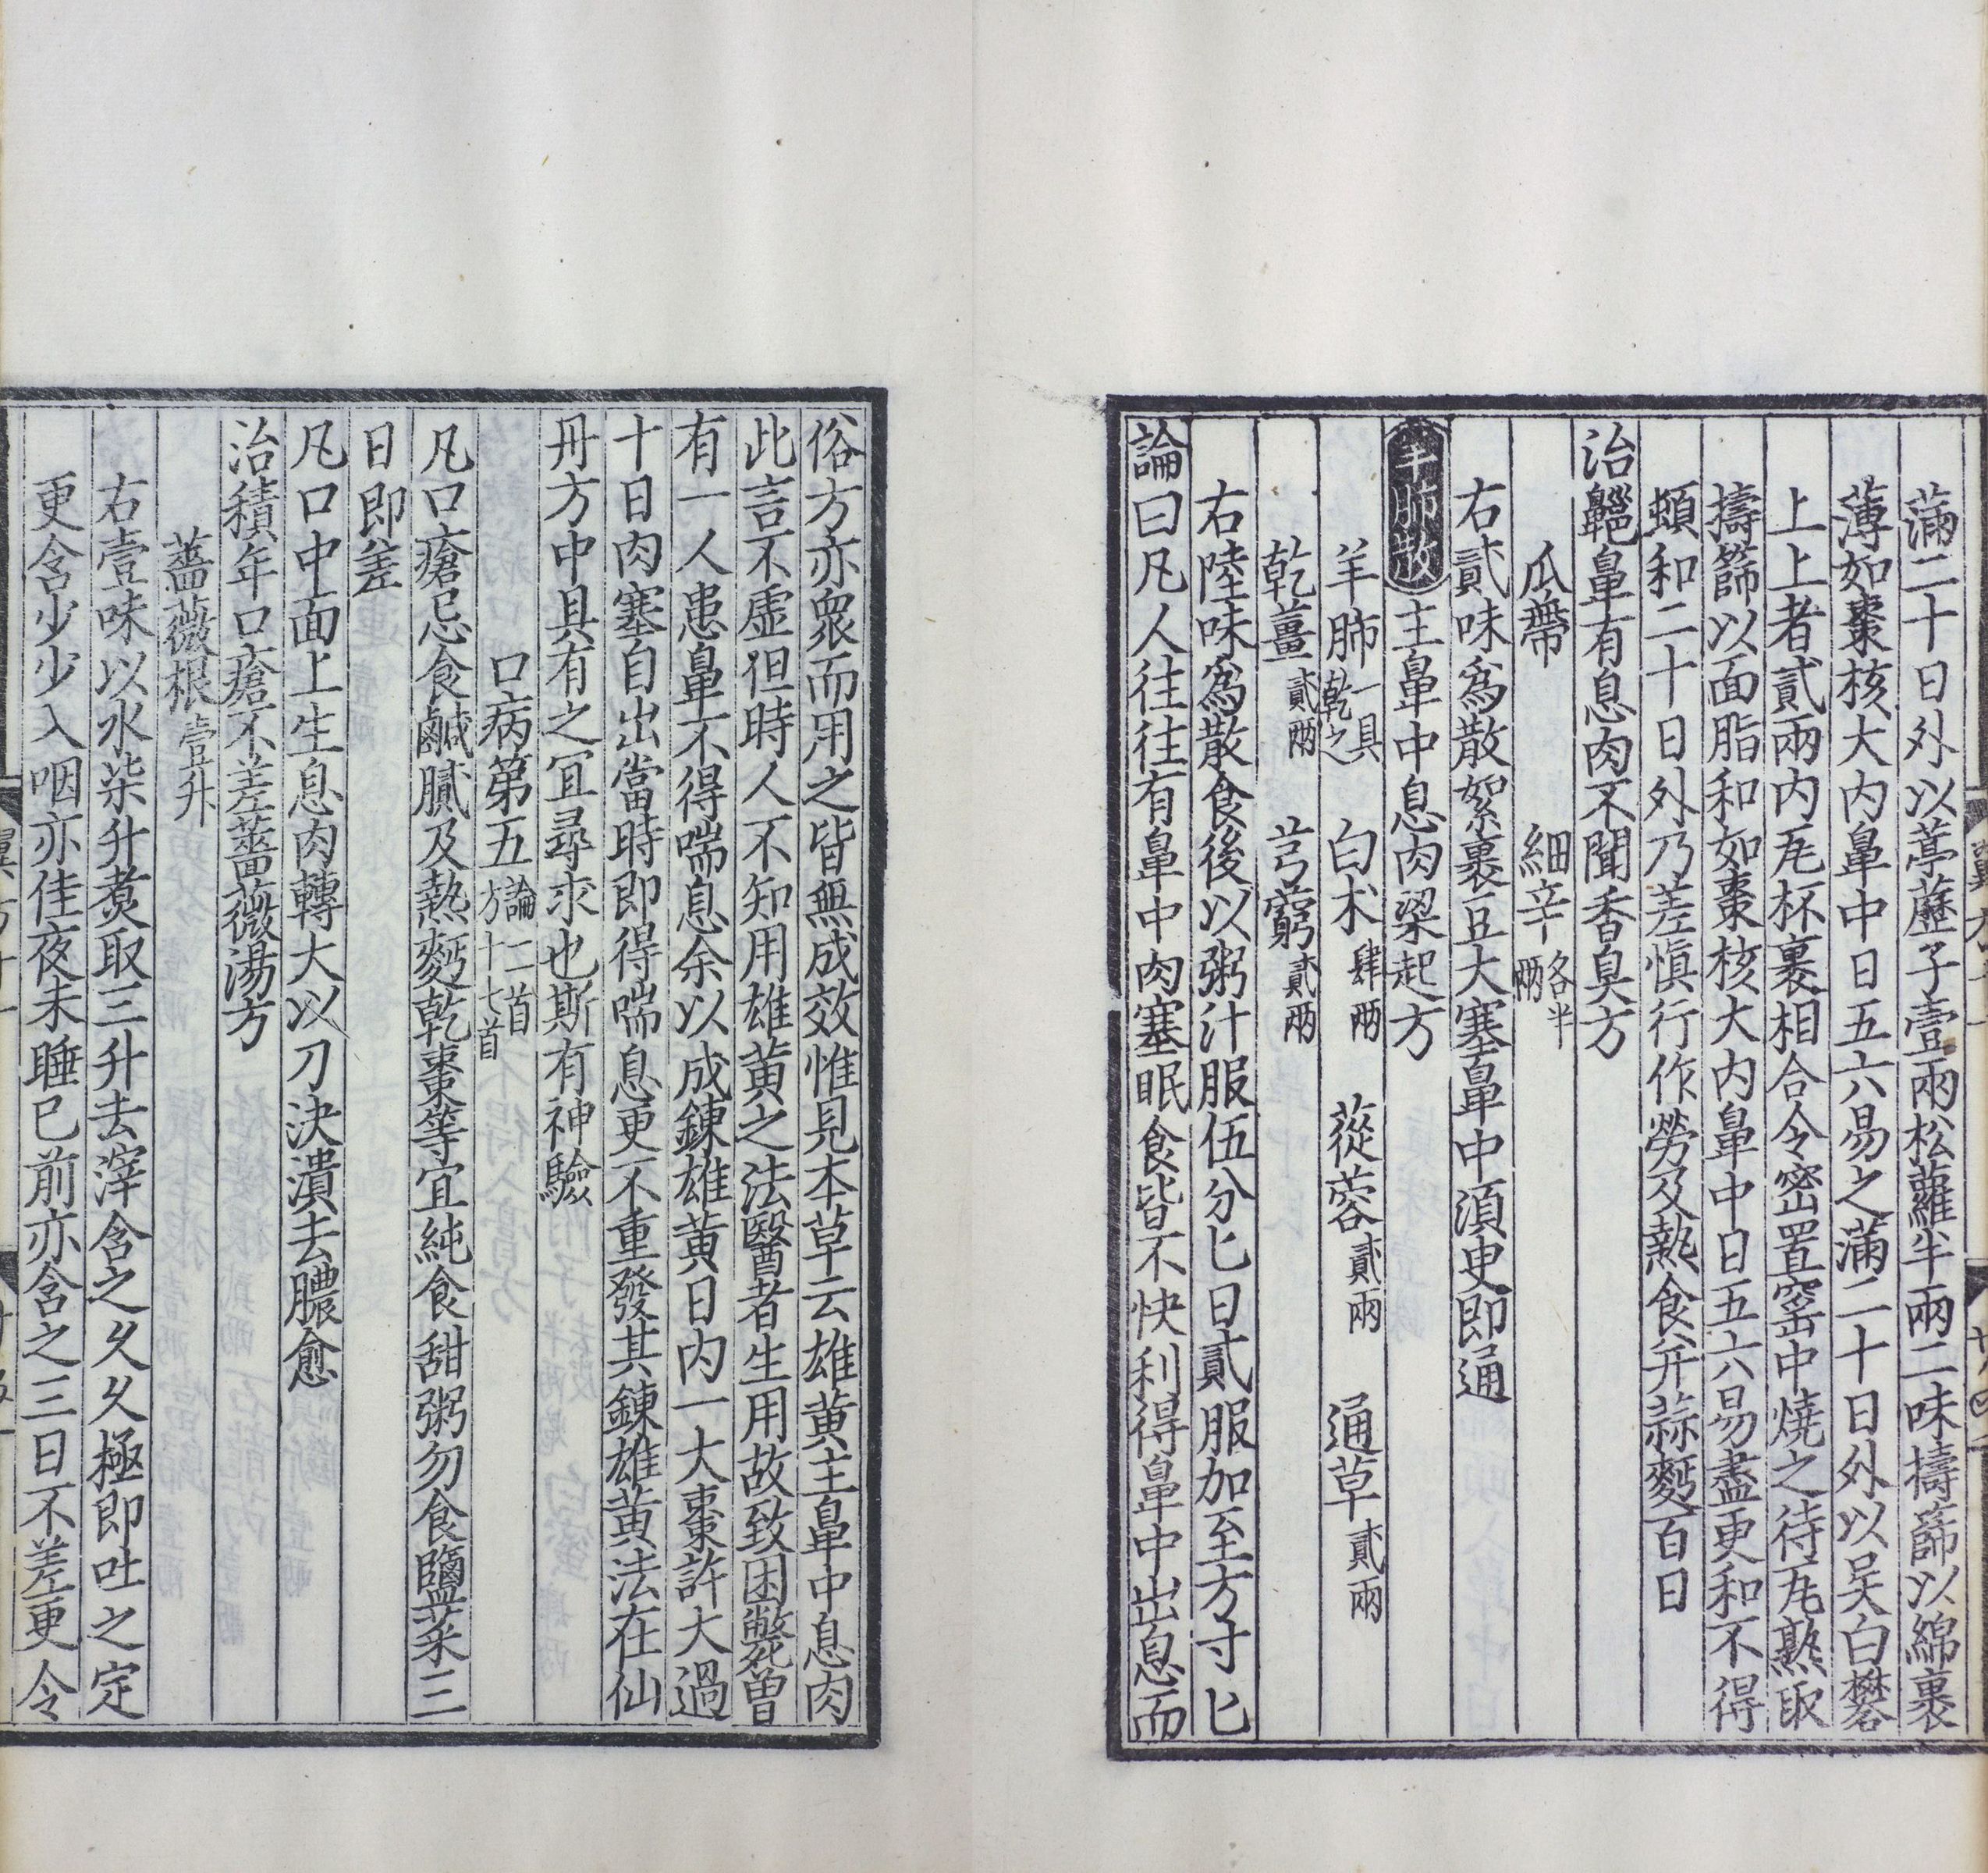 滿二十日外以葶藶子壹兩松蘿半兩二味擣篩以綿裹
薄如棗核大内鼻中日五六易之滿二十日外以吴白礬
上上者貳兩内瓦杯裹相合令密置窑中燒之待瓦熟取
擣篩以面脂和如棗核大内鼻中日五六易盡更和不得
頻和二十日外乃差慎行作勞及熱食并蒜麪百日
治齆鼻有息肉不聞香臭方
瓜蔕 細辛各半兩
右貳味為散絮裹豆大塞鼻中須臾即通
羊肺散主鼻中息肉梁起方
羊肺一具乾之 白术肆兩 蓯蓉貳兩 通草貳兩
乾薑貳兩 芎藭貳兩
右陸味為散食後以粥汁服伍分匕日貳服加至方寸匕
論曰凡人往往有鼻中肉塞眠食皆不快利得鼻中出息而
俗方亦衆而用之皆無成效惟見本草云雄黄主鼻中息肉
此言不虚但時人不知用雄黄之法醫者生用故致困斃曾
有一人患鼻不得喘息余以成鍊雄黄日内一大棗許大過
十日肉塞自出當時即得喘息更不重發其鍊雄黄法在仙
丹方中具有之冝尋求也斯有神驗
口病第五論二首方十七首
凡口瘡忌食鹹膩及熱麪乾棗等宜純食甜粥勿食鹽菜三
日即差
凡口中面上生息肉轉大以刀決潰去膿愈
治積年口瘡不差薔薇湯方
薔薇根壹升
右壹味以水柒升煑取三升去滓含之久久極即吐之定
更含少少入咽亦佳夜未睡已前亦含之三日不差更令